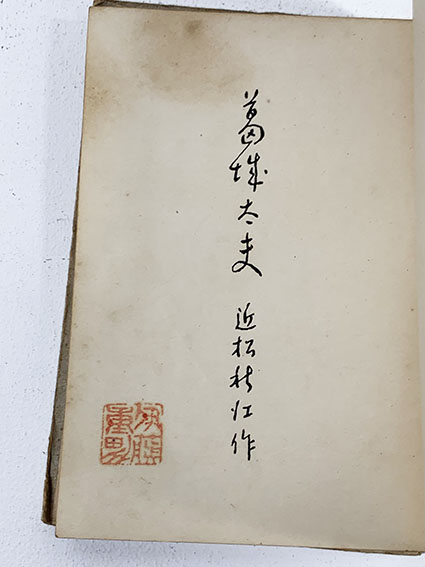 葛城太夫 近松秋江作